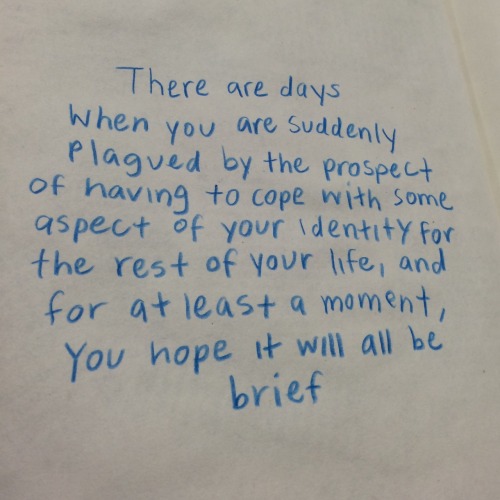 There are days
when you are suddenly
plagued by the prospect
of having to cope with some
aspect of your identity for
the rest of your life, and
for at least a moment,
you hope it will all be
brief